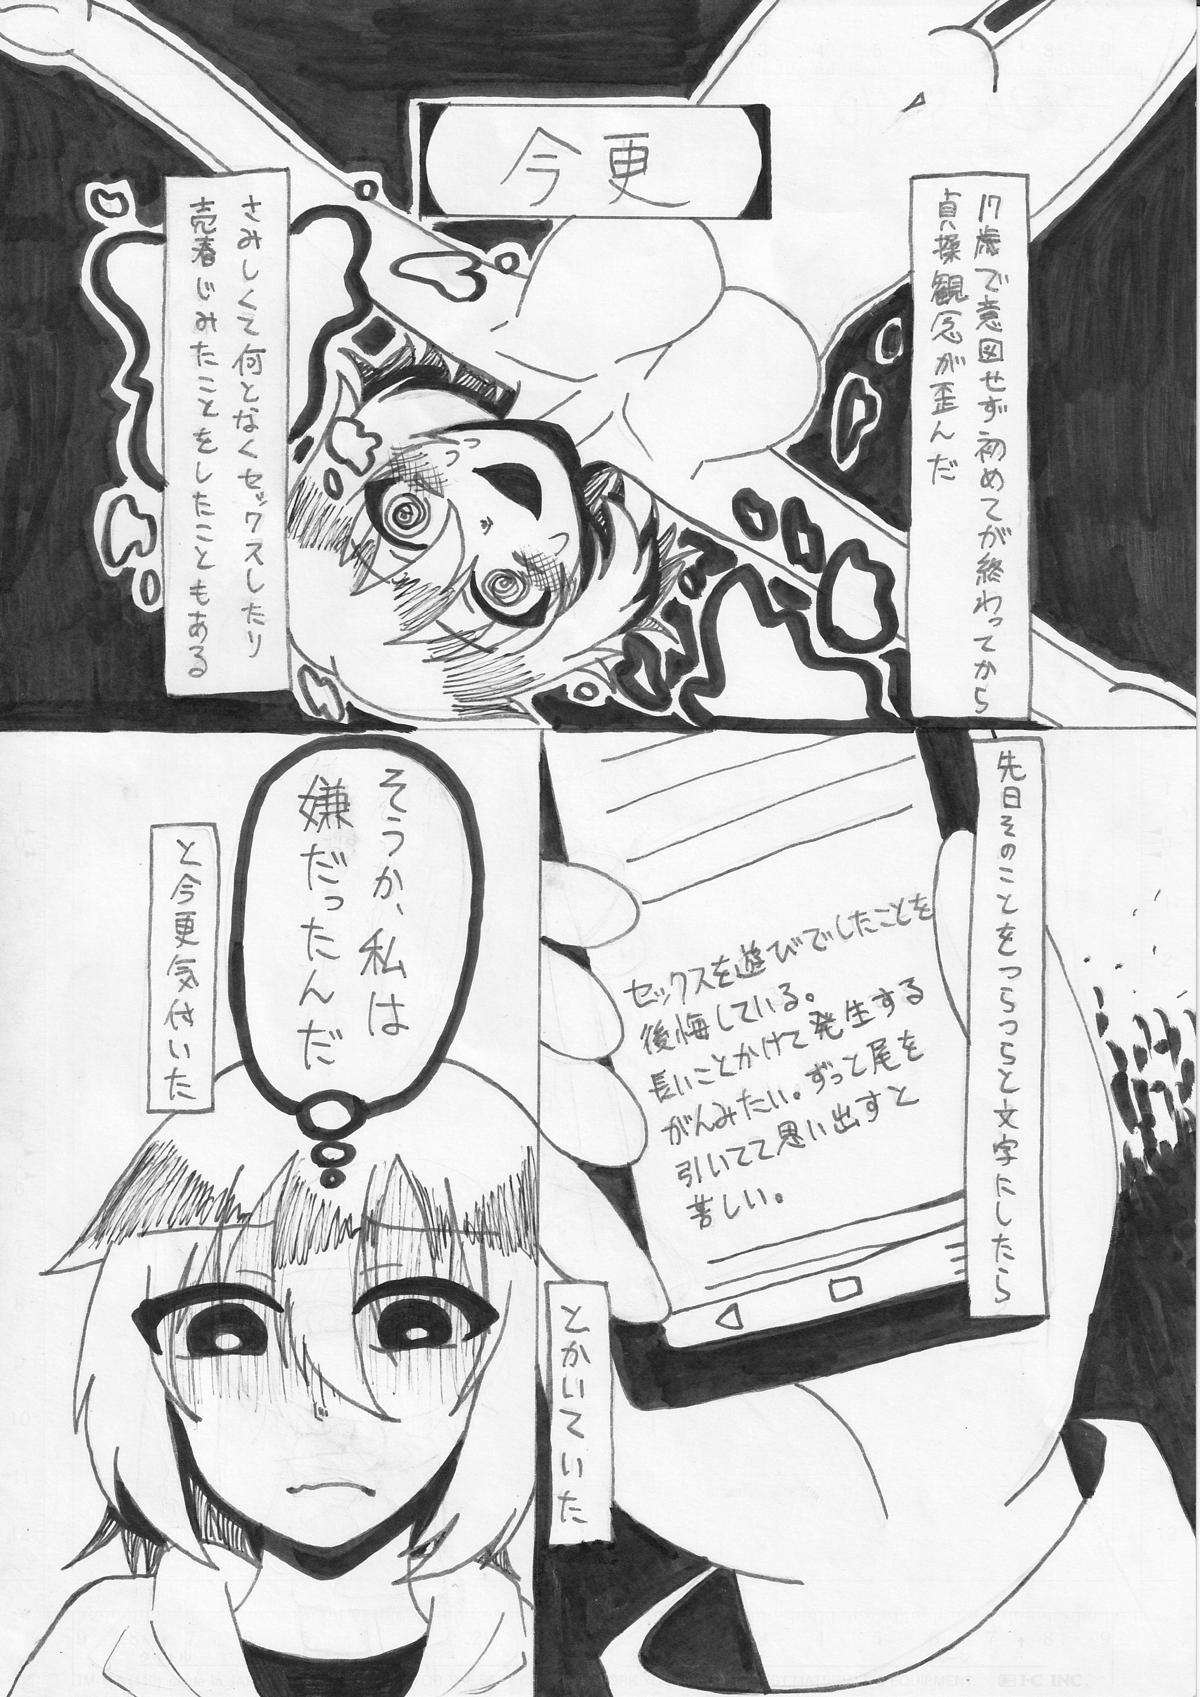 今更
17歳で意図せず初めてが終わってから
貞操観念が歪んだ
さみしくて何となくセックスしたり
売春じみたことをしたこともある
先日そのことをつらつらと文字にしたら
セックスを遊びでしたことを
後悔している。
長いことかけて発生する
がんみたい。ずっと尾を
引いてて思い出すと
苦しい。
とかいていた
そうか、私は
嫌だったんだ
と今更気付いた